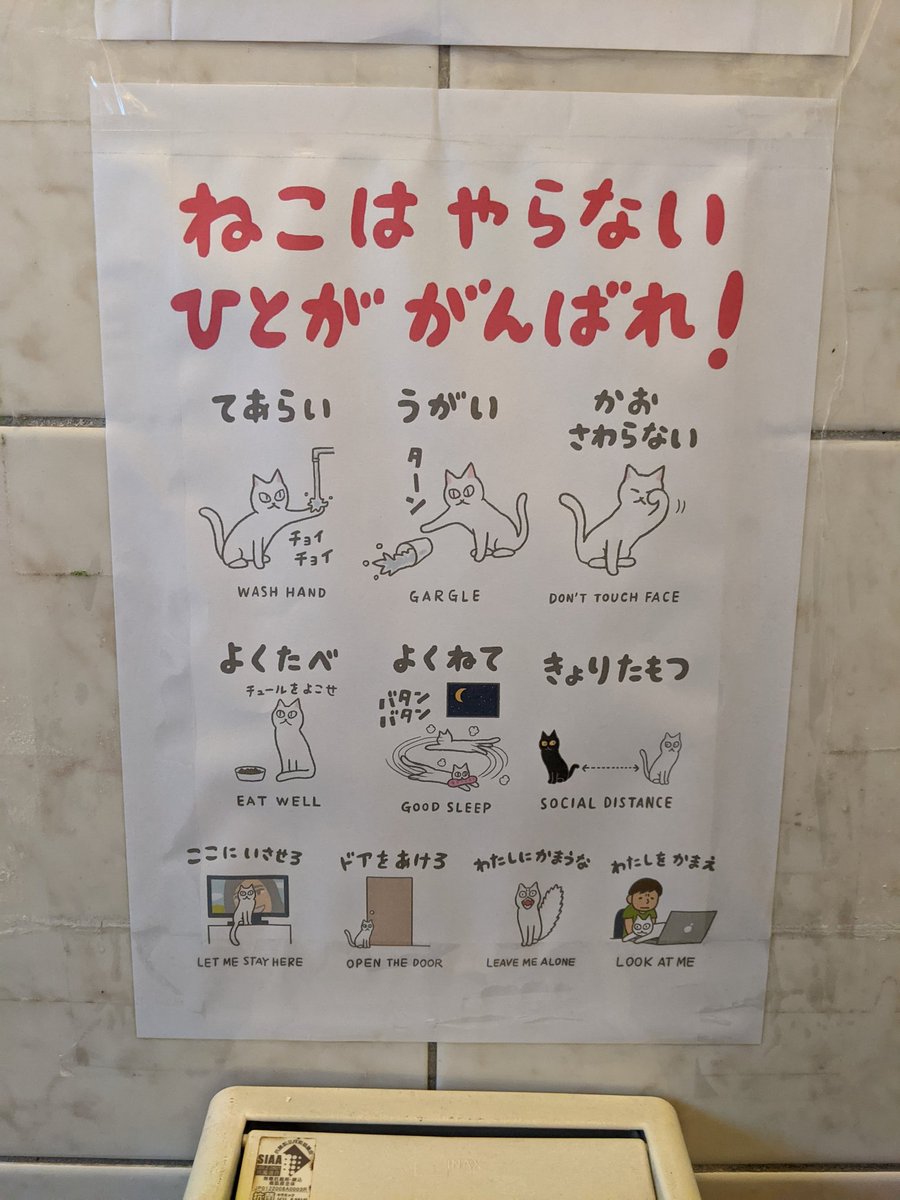 ねこは やらない
ひとが がんばれ!
てあらい
うがい
かお
さわらない
ターン
チョイ
チョイ
WASH HAND
GARGLE
DON'T TOUCH FACE
よくたべ
よくねて
きょりたもつ
チュールをよこせ
バタン
バタン
EAT WELL
GOOD SLEEP
SOCIAL DISTANCE
ここにいさせろ
ドアをあけろ
わたしにかまうな
わたしをかまえ
LET ME STAY HERE
OPEN THE DOOR
LEAVE ME ALONE
LOOK AT ME
SIAA